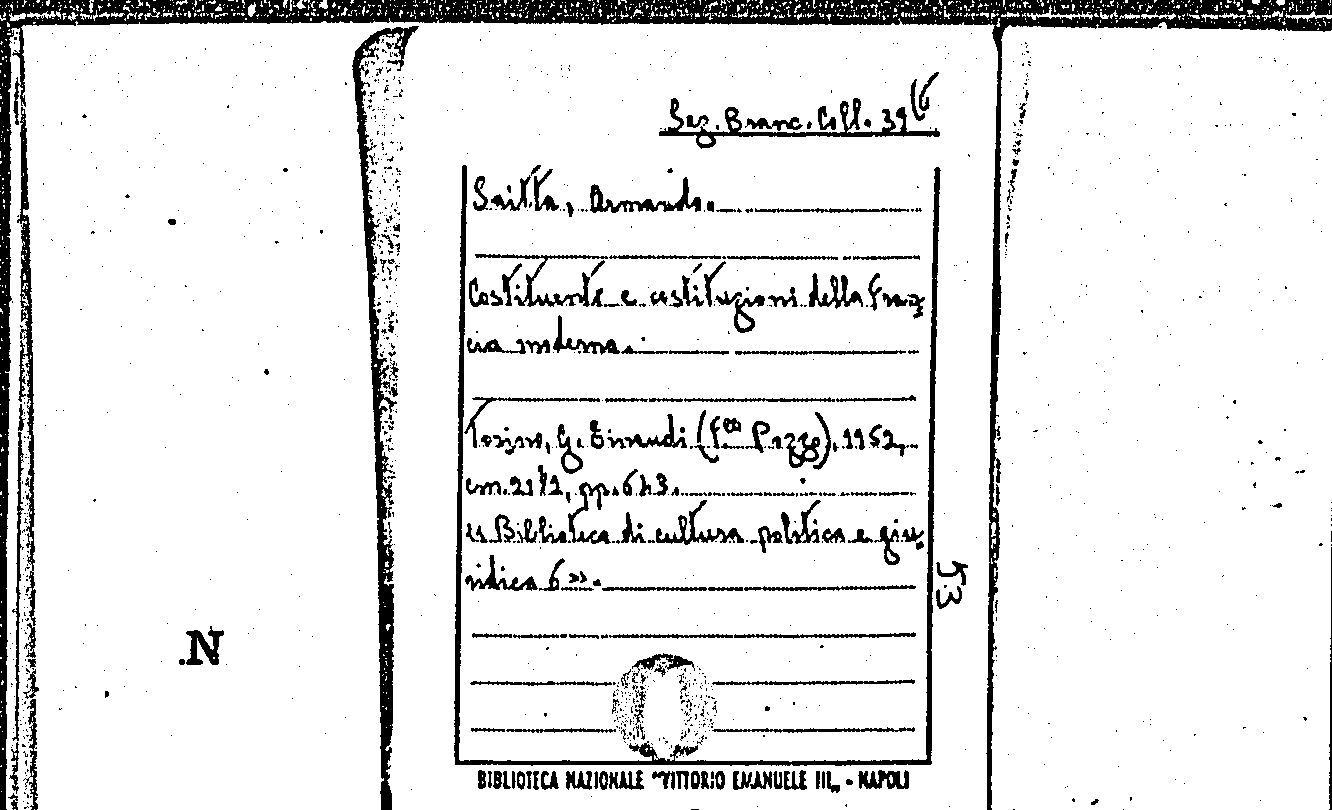 Sez. Branc. Coll. 39 (6
Saitta, Armando.
Costituenti e costituzioni della Fran=
cia moderna.
Torino, G. Einaudi (f.co Pozzo), 1952,
cm. 21½, pp. 643.
«Biblioteca di cultura politica e giu-
ridica 6».
53
.N
BIBLIOTECA NAZIONALE "VITTORIO EMANUELE III„ - NAPOLI